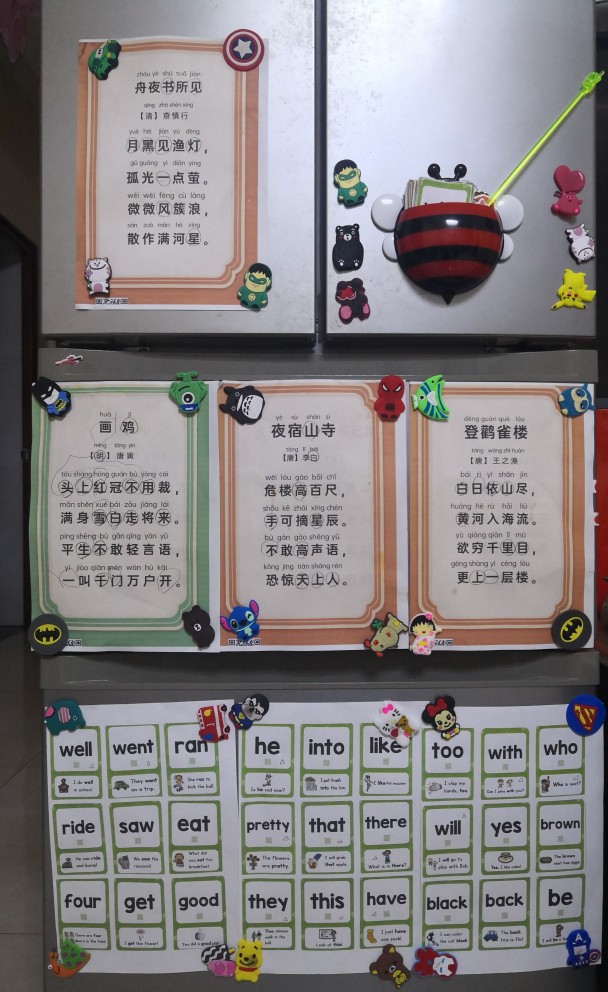 zhōu yè shū suǒ jiàn
舟夜书所见
qīng zhā shèn xíng
【清】查慎行
yuè hēi jiàn yú dēng
月黑见渔灯，
gū guāng yì diǎn yíng
孤光一点萤。
wēi wēi fēng cù làng
微微风簇浪，
sàn zuò mǎn hé xīng
散作满河星。
huà jī
画鸡
míng táng yín
【明】唐寅
tóu shàng hóng guān bú yòng cái
头上红冠不用裁，
mǎn shēn xuě bái zǒu jiāng lái
满身雪白走将来。
píng shēng bù gǎn qīng yán yǔ
平生不敢轻言语，
yí jiào qiān mén wàn hù kāi
一叫千门万户开。
yè sù shān sì
夜宿山寺
táng lǐ bái
【唐】李白
wēi lóu gāo bǎi chǐ
危楼高百尺，
shǒu kě zhāi xīng chén
手可摘星辰。
bù gǎn gāo shēng yǔ
不敢高声语，
kǒng jīng tiān shàng rén
恐惊天上人。
dēng guàn què lóu
登鹳雀楼
táng wáng zhī huàn
【唐】王之涣
bái rì yī shān jìn
白日依山尽，
huáng hé rù hǎi liú
黄河入海流。
yù qióng qiān lǐ mù
欲穷千里目，
gèng shàng yì céng lóu
更上一层楼。
well went ran he into like too with who
I do well in school.
They went on a trip.
She ran to kick the ball.
Is he sad now?
I put trash into the bin.
I like the teacher
I clap my hands, too
Can I play with you?
Who is next?
ride saw eat pretty that there will yes brown
He can ride and jump!
We saw the raccoon!
What did you eat for breakfast?
The flowers are pretty.
I will grab that apple
What is in there?
I will go to play with Bob
Yes, I like cake!
The brown nest has eggs
four get good they this have black back be
There are four doors in the fence
I get this flower!
You did a good job
They always walk in the hall.
Look at this!
I just have one sock!
I can color the cat black
The back tire is flat
I will be
A